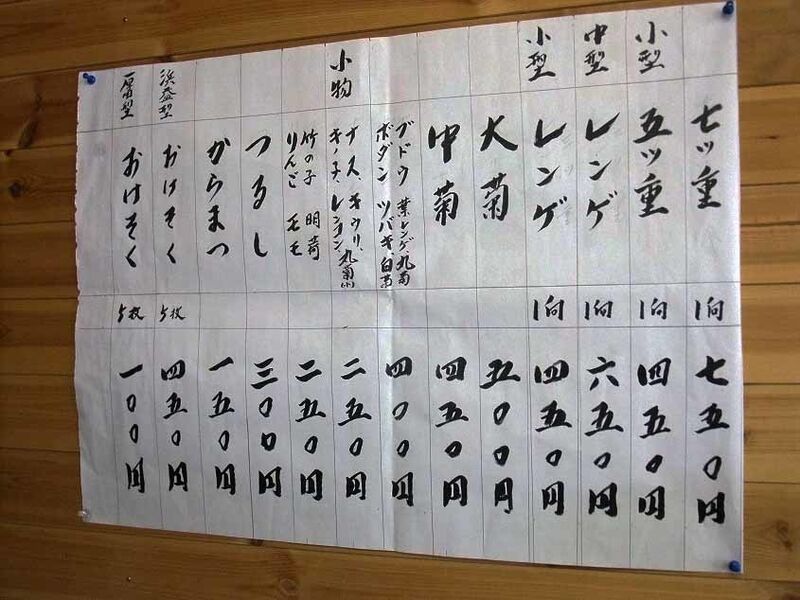 七ッ重 1向 七五〇円
小型 五ッ重 1向 四五〇円
中型 レンゲ 1向 六五〇円
小型 レンゲ 1向 四五〇円
大菊 五〇〇円
中菊 四五〇円
ブドウ 葉レンゲ、丸菊
ボダン ツバキ、白菊 四〇〇円
小物 ナス、キウリ、
キノ子、レンコン、丸菊小 二五〇円
竹の子 明荷
りんご モモ 二五〇円
つるし 三〇〇円
からまつ 一五〇円
浜益型 おけそく 5枚 四五〇円
厚田型 おけそく 5枚 一〇〇円